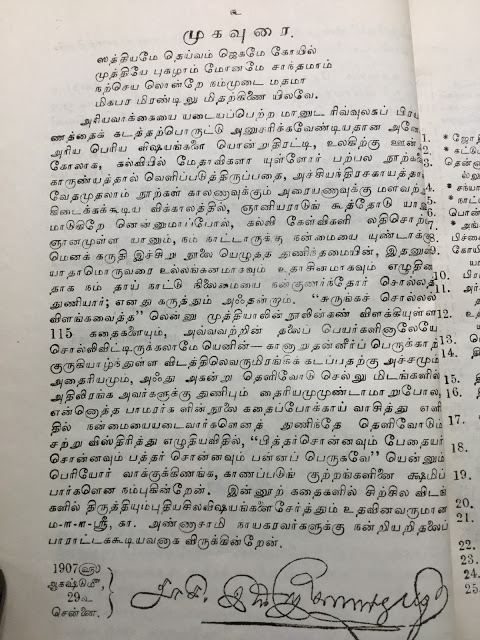 ௫
முகவுரை.
ஸத்தியமே தெய்வம் ஜெகமே கோயில்
முத்தியே புகழாம் மோனமே சாந்தமாம்
நற்செய லொன்றே நம்முடை மதமா
மிகபர மிரண்டினு மிதற்கிணை யிலவே.
அரியவாக்கையை யடையப்பெற்ற மானுட ரிவ்வுலகப் பிரய
ணத்தைக் கடத்தற்பொருட்டு அனுசரிக்கவேண்டியதான அனே
அரிய பெரிய விஷயங்களை யொன்றுதிரட்டி, உலகிற்கு ஊன்
கோலாக, கல்வியில் மேதாவிகளா யுள்ளோர் பற்பல நூற்க
காருண்யத்தால் வெளிப்படுத்திருப்பதை, அச்சியந்திரசகாயத்தா
வேதமுதலாம் நூற்கள் காலணாவுக்கும் அரையணாவுக்கு மளவற்
கிடைக்கக்கூடிய விக்காலத்தில், ஞானியராடுங் கூத்தோடு யாழ்
மாடுகிறே னென்னுமாப்போல், கல்வி கேள்விகளி லதிசொற்
ஞானமுள்ள யானும், நம் நாட்டாருக்கு நன்மையை யுண்டாக்கு
மெனக் கருதி இச்சிறு நூலை யெழுதத் துணிந்தமையின், இதனுள்
யாதாமொருவரை உல்லங்கனமாகவும் உதாசினமாகவும் எழுதின
தாக நம் தாய் நாட்டு நிலைமையை நன்குணர்ந்தோர் சொல்லத்
துணியார்; எனது கருத்தும் அஃதன்றாம். “சுருங்கச் சொல்லல்
விளங்கவைத்த” லென்னு முத்தியாலிந்நூலின்கண் விளக்கியுள்ள
115 கதைகளையும், அவ்வவற்றின் தலைப் பெயர்களினாலேயே
சொல்லிவிட்டிருக்கலாமே யெனின்—கானாறு தண்ணீர்ப் பெருக்காற்
குறுகியாழ்ந்துள்ள விடத்திலெவருமிரங்கிக் கடப்பதற்கு அச்சமும்
அதைரியமும், அஃது அகன்று தெளிவோடு செல்லு மிடங்களில்
அதிலிரங்க அவர்களுக்கு துணிபும் தைரியமுமுண்டாமாறுபோல,
என்னொத்த பாமரர்களின்நூலை கதைப்போக்காய் வாசித்து எளி
தில் நன்மையையடைவார்களெனத் துணிந்தே தெளிவோடும்
சற்று விஸ்திரித்து எழுதியவிதில், “பித்தர்சொன்னவும் பேதையர்
சொன்னவும் பத்தர் சொன்னவும் பன்னப் பெருகவே” யென்னும்
பெரியோர் வாக்குக்கிணங்க, காணப்படுங் குற்றங்களினை க்ஷமிப்
பார்களென நம்புகிறேன். இன்நூற் கதைகளில் சிற்சில விடங்
களில் திருத்தியும்புதியசிலவிஷயங்களைசேர்த்தும் உதவினவருமான
ம-ா-ா-ஸ்ரீ, கா. அண்ணாசாமி நாயகரவர்களுக்கு நன்றியறிதலைப்
பாராட்டக்கூடியவனாக விருக்கின்றேன்.
1907௵
ஆகஷ்டு௴
29௳
சென்னை.
1.
2.
3.
4.
5.
6.
7.
8.
9.
10.
11.
12.
13.
14.
15.
16.
17.
18.
19.
20.
21.
22.
23.
24.
25.